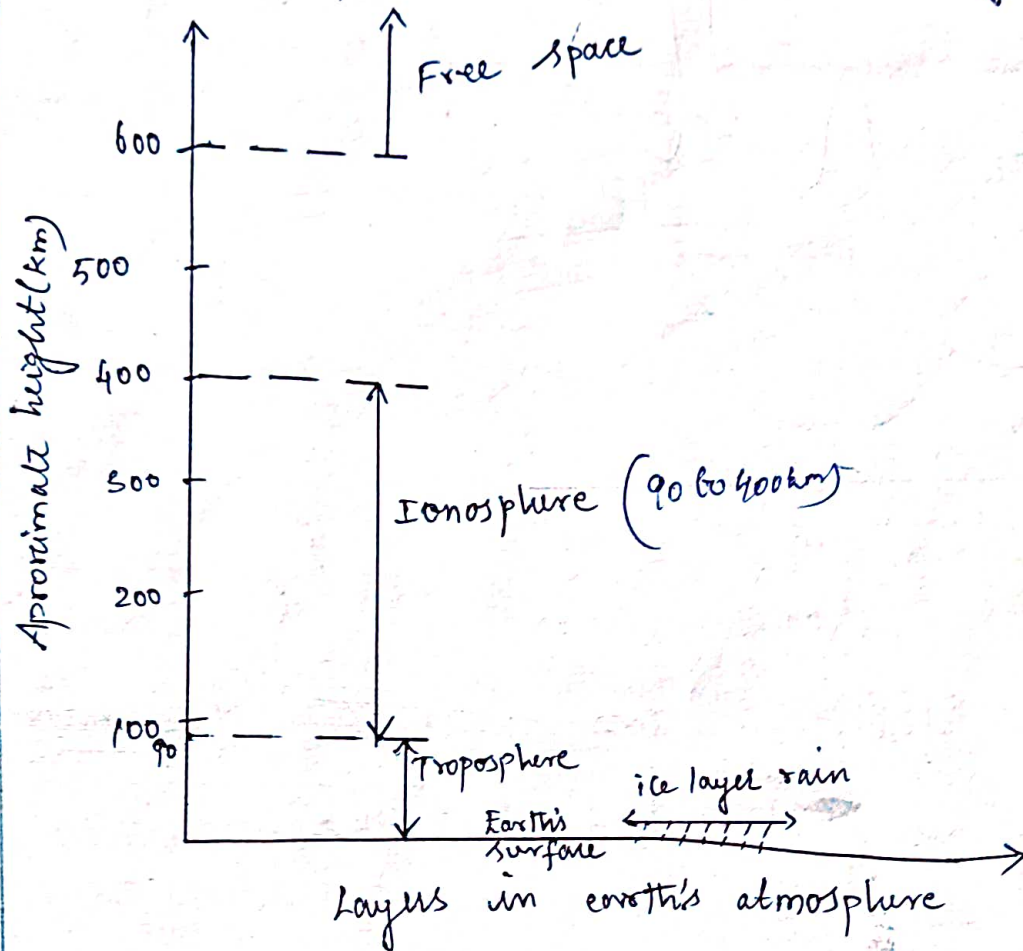 Free space
600
500
400
300
200
100
90
Aproximate height (km)
Ionosphere (90 to 400km)
Troposphere
ice layer rain
Earth's
surface
Layers in earth's atmosphere